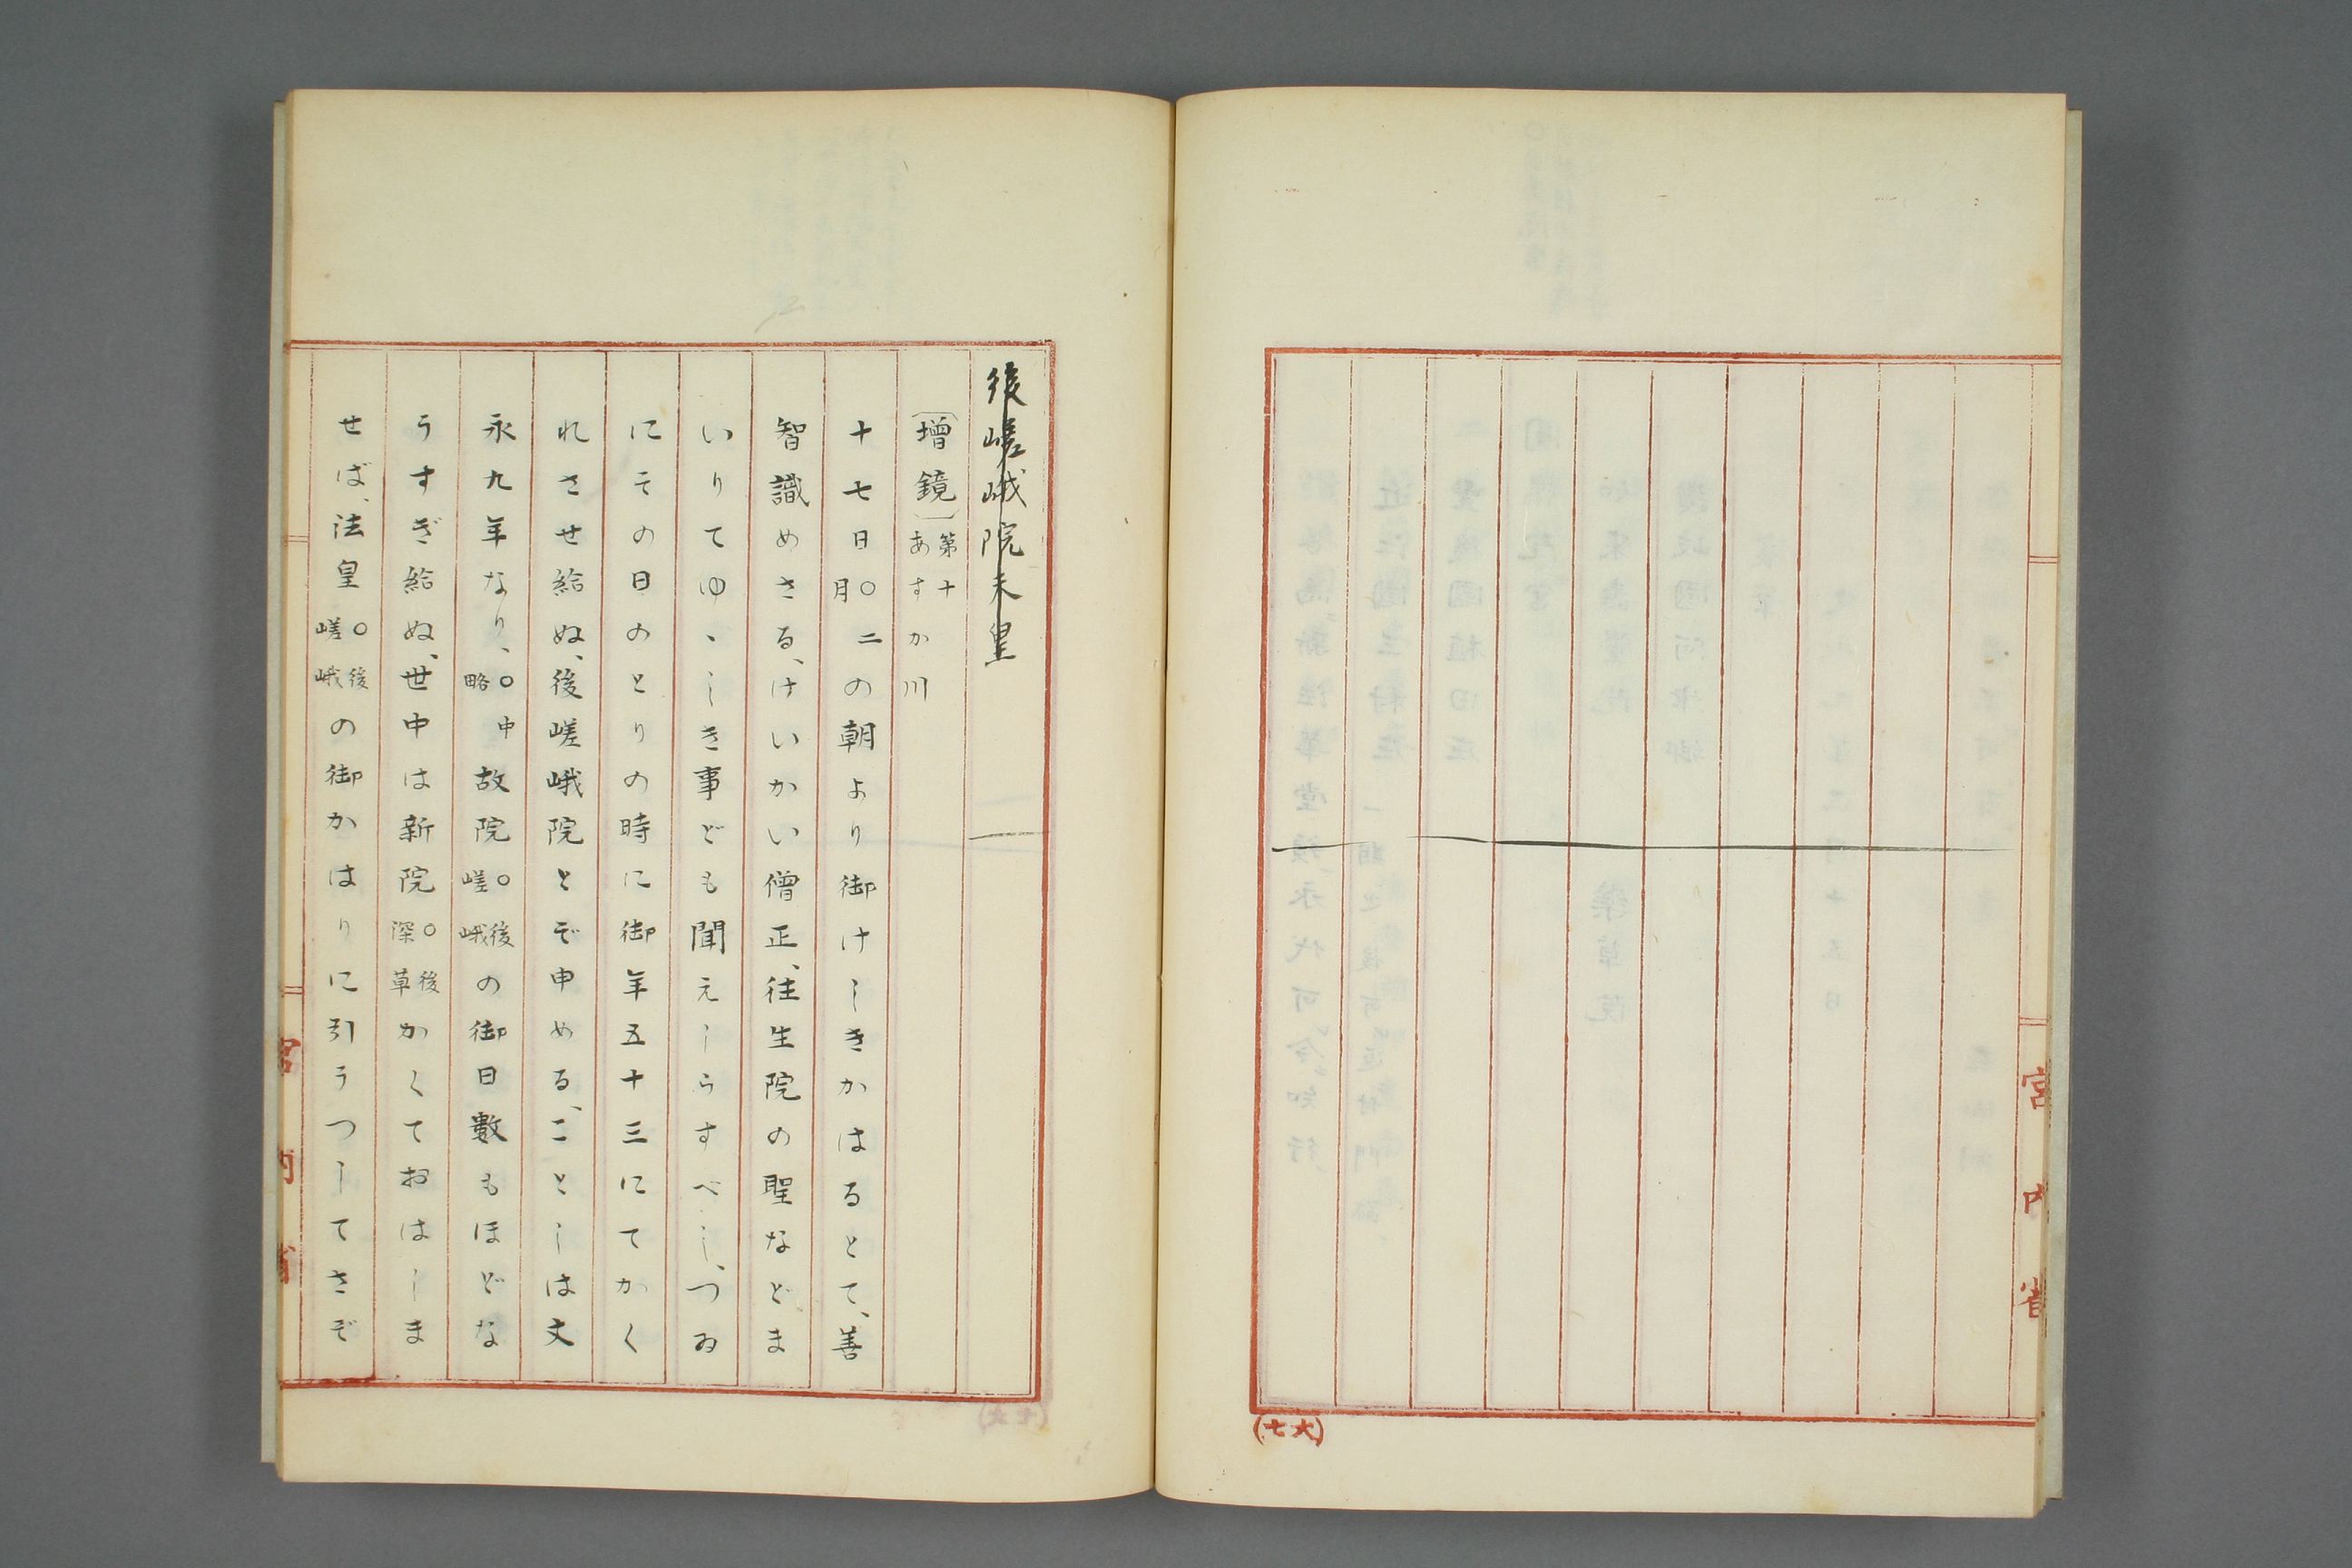 宮内省
(七大)
後嵯峨院天皇
〔增鏡〕第十あすか川
十七日〇二月の朝より御けしきかはるとて、善
智識めさる、けいかい僧正、往生院の聖などま
いりてゆゝしき事ども聞えしらすべし、つゐ
にその日のとりの時に御年五十三にてかく
れさせ給ぬ、後嵯峨院とぞ申める、ことしは文
永九年なり、〇中略故院〇後嵯峨の御日數もほどな
うすぎ給ぬ、世中は新院〇後深草かくておはしま
せば、法皇〇後嵯峨の御かはりに引うつしてさぞ
宮内省